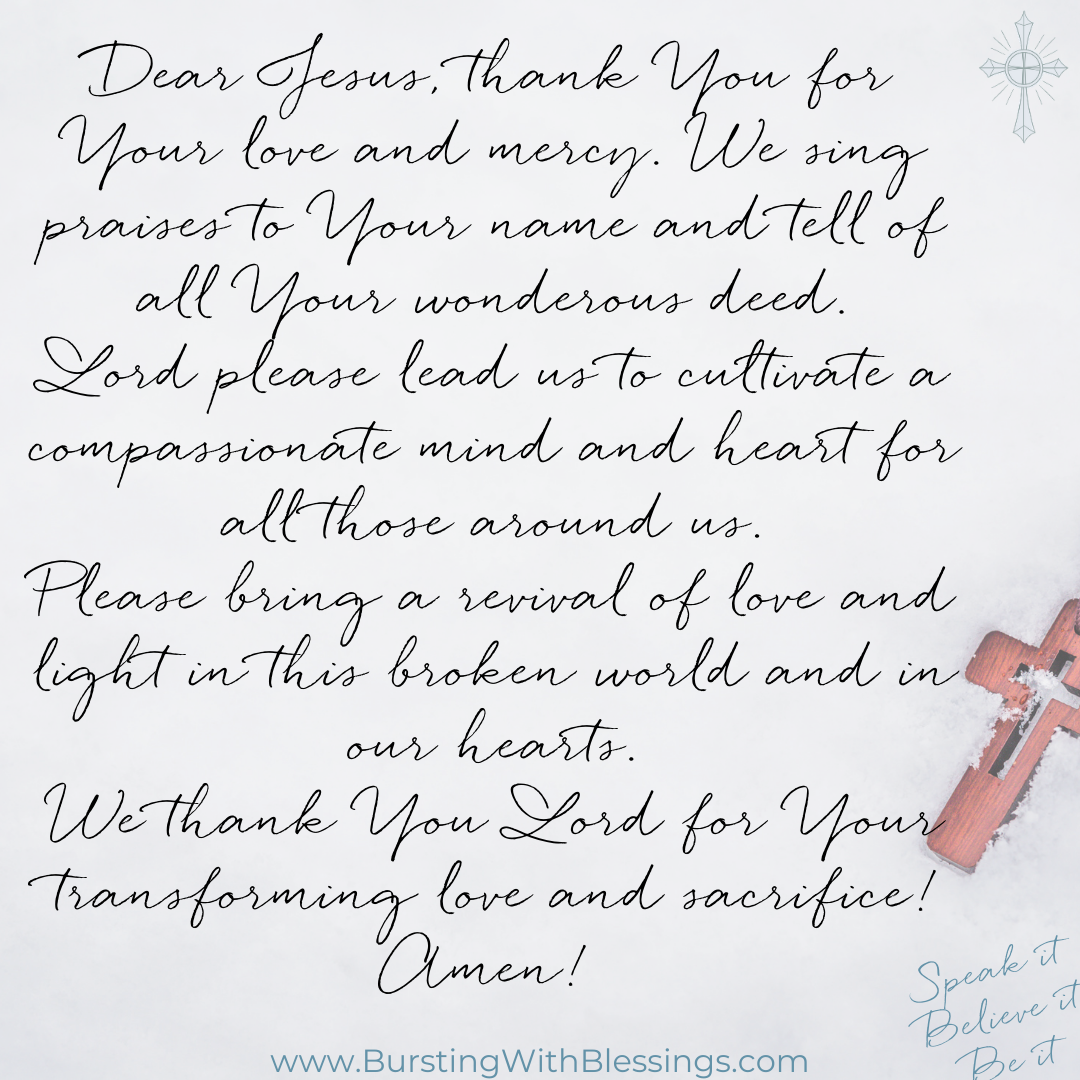 Dear Jesus, thank You for
Your love and mercy. We sing
praises to Your name and tell of
all Your wonderous deed.
Lord please lead us to cultivate a
compassionate mind and heart for
all those around us.
Please bring a revival of love and
light in this broken world and in
our hearts.
We thank You Lord for Your
transforming love and sacrifice!
Amen!
Speak it
Believe it
Be it
www.BurstingWithBlessings.com